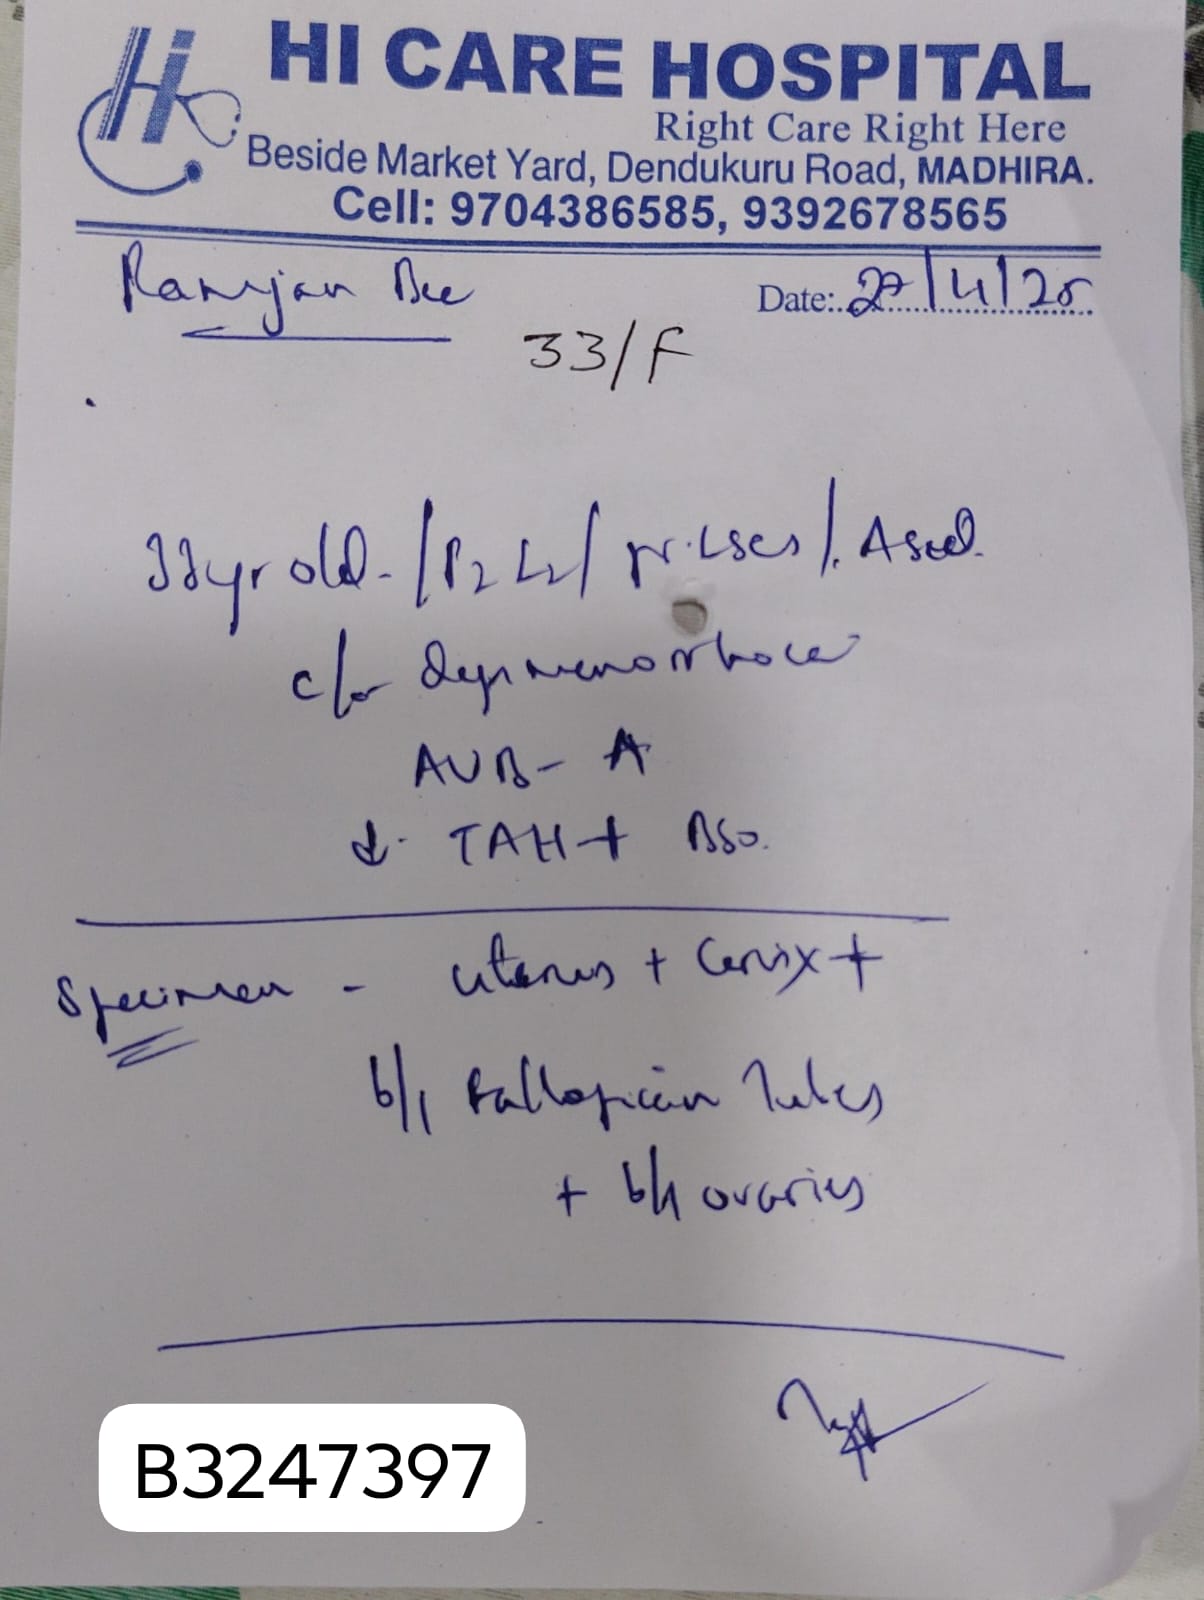 Hi
HI CARE HOSPITAL
Right Care Right Here
Beside Market Yard, Dendukuru Road, MADHIRA.
Cell: 9704386585, 9392678565
Ramjan Bee
Date: 27/4/25
33/F
33yr old - / P2 L2 / pr. LSCS /
c/o dysmenorrhoea
AUB - A
TAH + BSO.
Specimen - uterus + Cervix +
b/l Fallopian tubes
+ b/l ovaries
B3247397